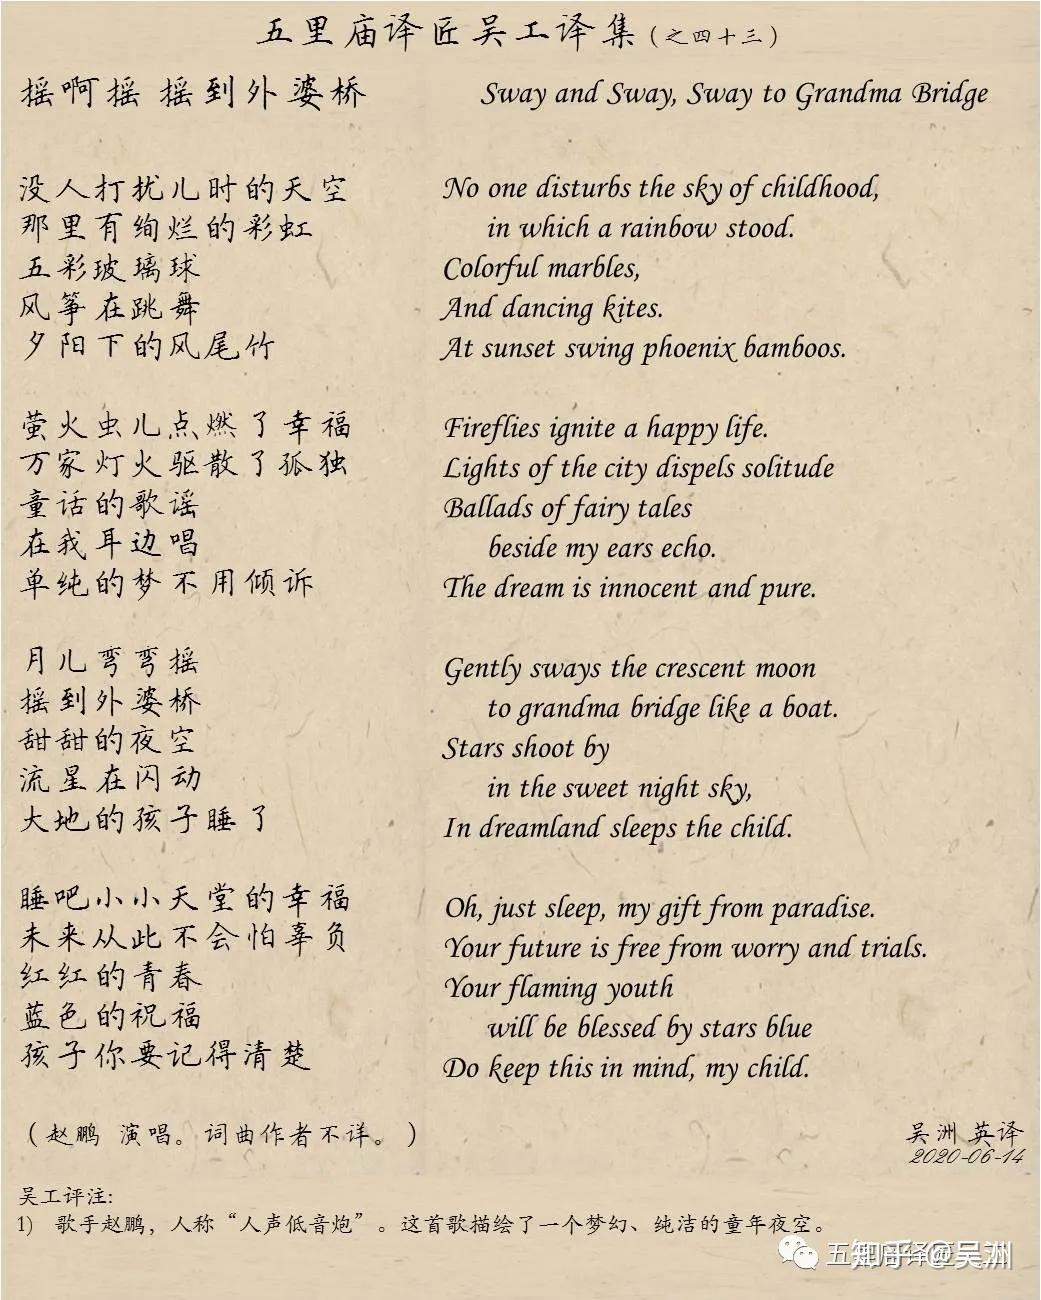 五里庙译匠吴工译集（之四十三）
摇啊摇 摇到外婆桥
Sway and Sway, Sway to Grandma Bridge
没人打扰儿时的天空
那里有绚烂的彩虹
五彩玻璃球
风筝在跳舞
夕阳下的风尾竹
No one disturbs the sky of childhood,
in which a rainbow stood.
Colorful marbles,
And dancing kites.
At sunset swing phoenix bamboos.
萤火虫儿点燃了幸福
万家灯火驱散了孤独
童话的歌谣
在我耳边唱
单纯的梦不用倾诉
Fireflies ignite a happy life.
Lights of the city dispels solitude
Ballads of fairy tales
beside my ears echo.
The dream is innocent and pure.
月儿弯弯摇
摇到外婆桥
甜甜的夜空
流星在闪动
大地的孩子睡了
Gently sways the crescent moon
to grandma bridge like a boat.
Stars shoot by
in the sweet night sky,
In dreamland sleeps the child.
睡吧小小天堂的幸福
未来从此不会怕辜负
红红的青春
蓝色的祝福
孩子你要记得清楚
Oh, just sleep, my gift from paradise.
Your future is free from worry and trials.
Your flaming youth
will be blessed by stars blue
Do keep this in mind, my child.
（赵鹏 演唱。词曲作者不详。）
吴洲 英译
2020-06-14
吴工评注:
1) 歌手赵鹏，人称“人声低音炮”。这首歌描绘了一个梦幻、纯洁的童年夜空。
知乎 @吴洲